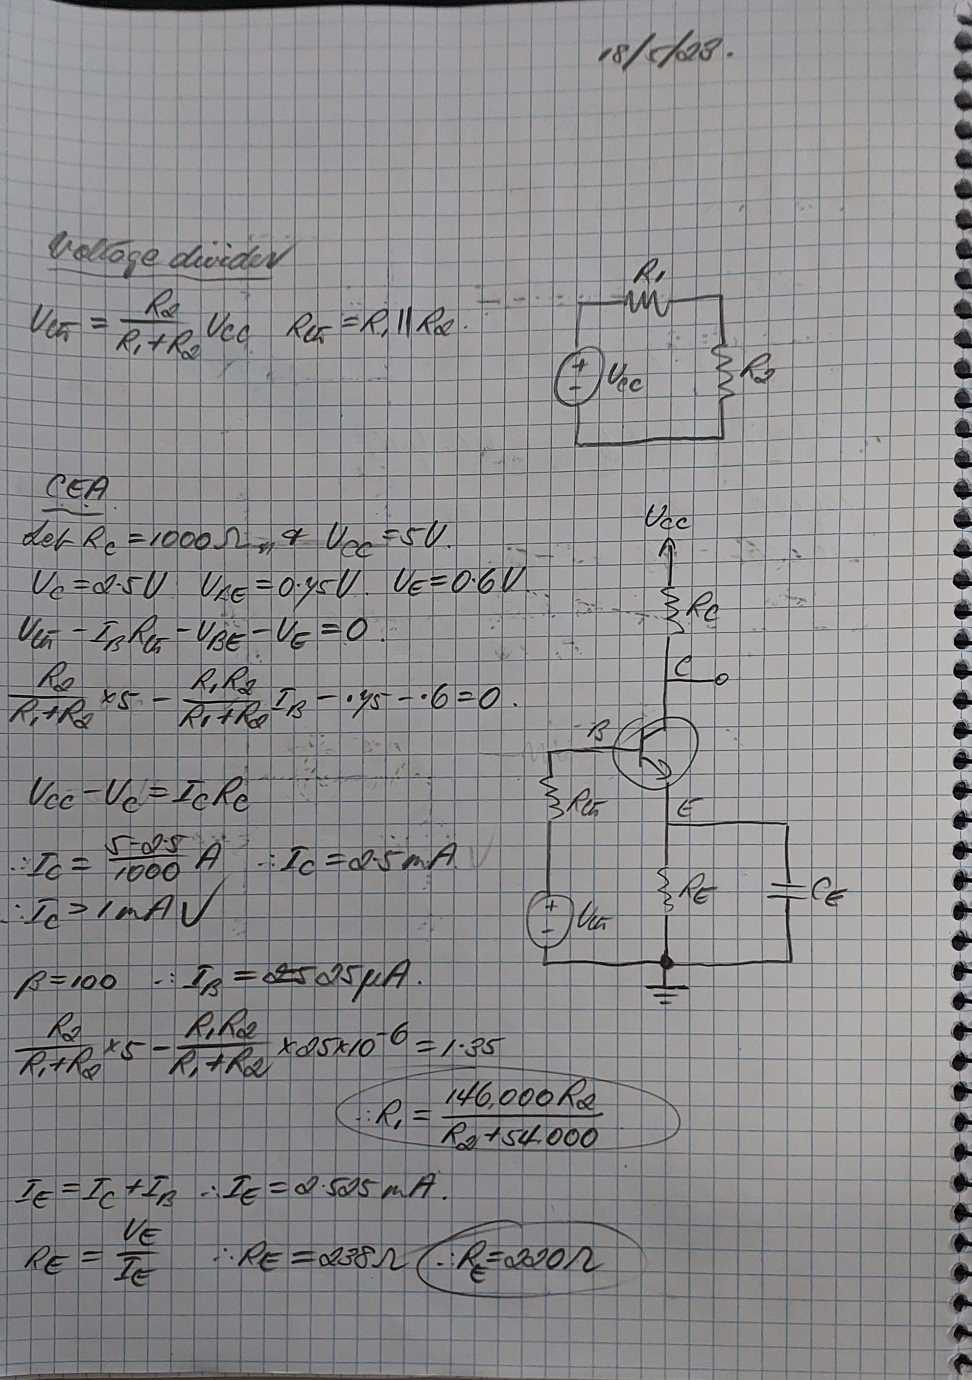 18/5/23.
Voltage divider
Vth = R2/(R1+R2) Vcc   Rth = R1||R2.
R1
+
-
Vcc
R2
CEA
Let Rc = 1000Ω & Vcc = 5V.
Vc = 2.5V   VBE = 0.75V.   VE = 0.6V
Vth - IBRth - VBE - VE = 0.
R2/(R1+R2) ×5 - R1R2/(R1+R2) IB - .75 - .6 = 0.
Vcc
Rc
C
B
E
Rth
RE
CE
+
-
Vth
Vcc - Vc = IcRc
∴ Ic = (5-2.5)/1000 A   ∴ Ic = 2.5mA
∴ Ic > 1mA √
β = 100   ∴ IB = 25 25μA.
R2/(R1+R2) ×5 - R1R2/(R1+R2) ×25×10^-6 = 1.35
∴ R1 = 146,000R2/(R2+54,000)
IE = Ic + IB   ∴ IE = 2.525mA.
RE = VE/IE   ∴ RE = 238Ω   ∴ RE = 220Ω